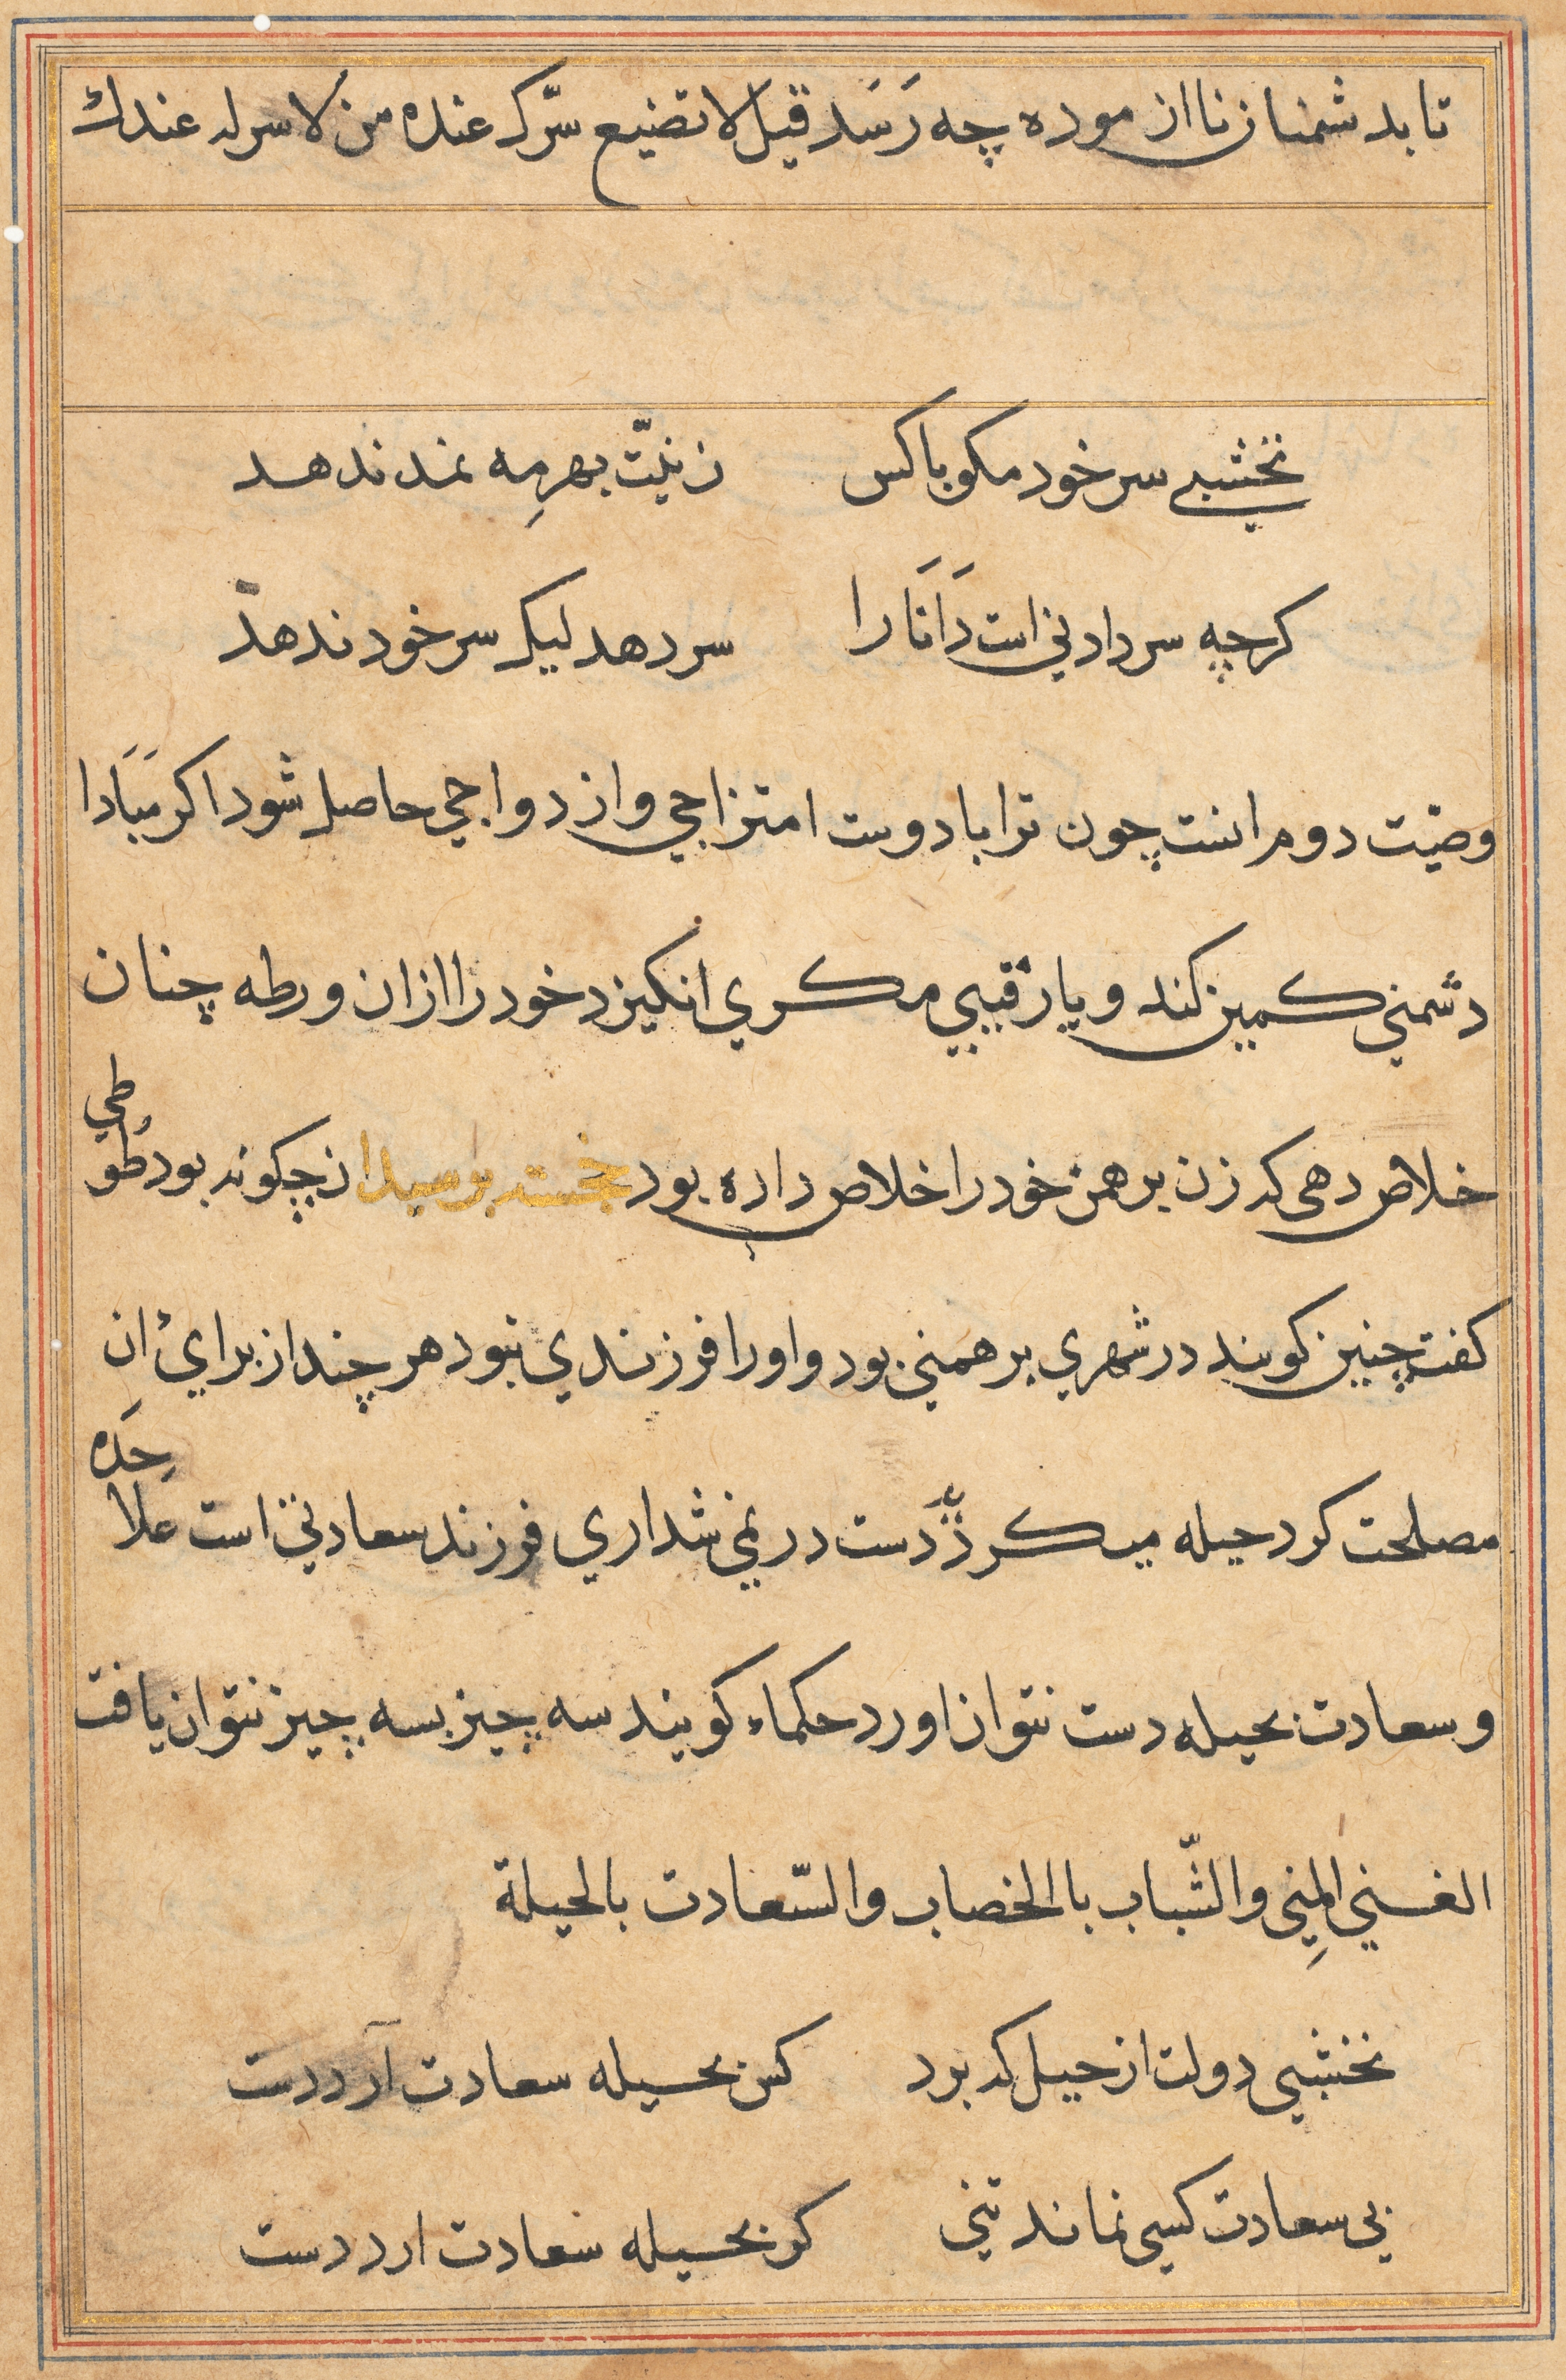 تا بد شمنان نا ازموده چه رَسَد قیل لا تضیع سرّک عنده من لا سر له عندک
نخشبی سر خود مکو با کس زنیّت بهر مه ند ندهد
کرچه سر دادنی است دَانَا را سر دهد لیک سر خود ندهد
وصیّت دوم انست چون ترا با دوست امتزاجی و ازدواجی حاصل شود اکر مَبَادا
دشمنی کمین کند و یا رقیبی مکری انکیزد خود را ازان ورطه چنان
خلاص دهی که زن برهمن خود را خلاص داده بود خجسته پرسید ان چکونه بود طُوطی
کفت چنین کویند در شهری برهمنی بود و اورا فرزندی نبود هر چند از برای ان
مصلحت کرد حیله میکرد دَست در نمی شد اری فرزند سعادتی است علاحده
و سعادت بحیله دست نتوان اورد حکماء کویند سه چیز بسه چیز نتوان یافت
الغنی المِنی والشّباب باالخصاب والسّعادت بالحیلة
نخشبی دولت از حیل که برد کس بحیله سعادت آرد دست
بی سعادت کسی نماند تنی کر بحیله سعادت ارد دست